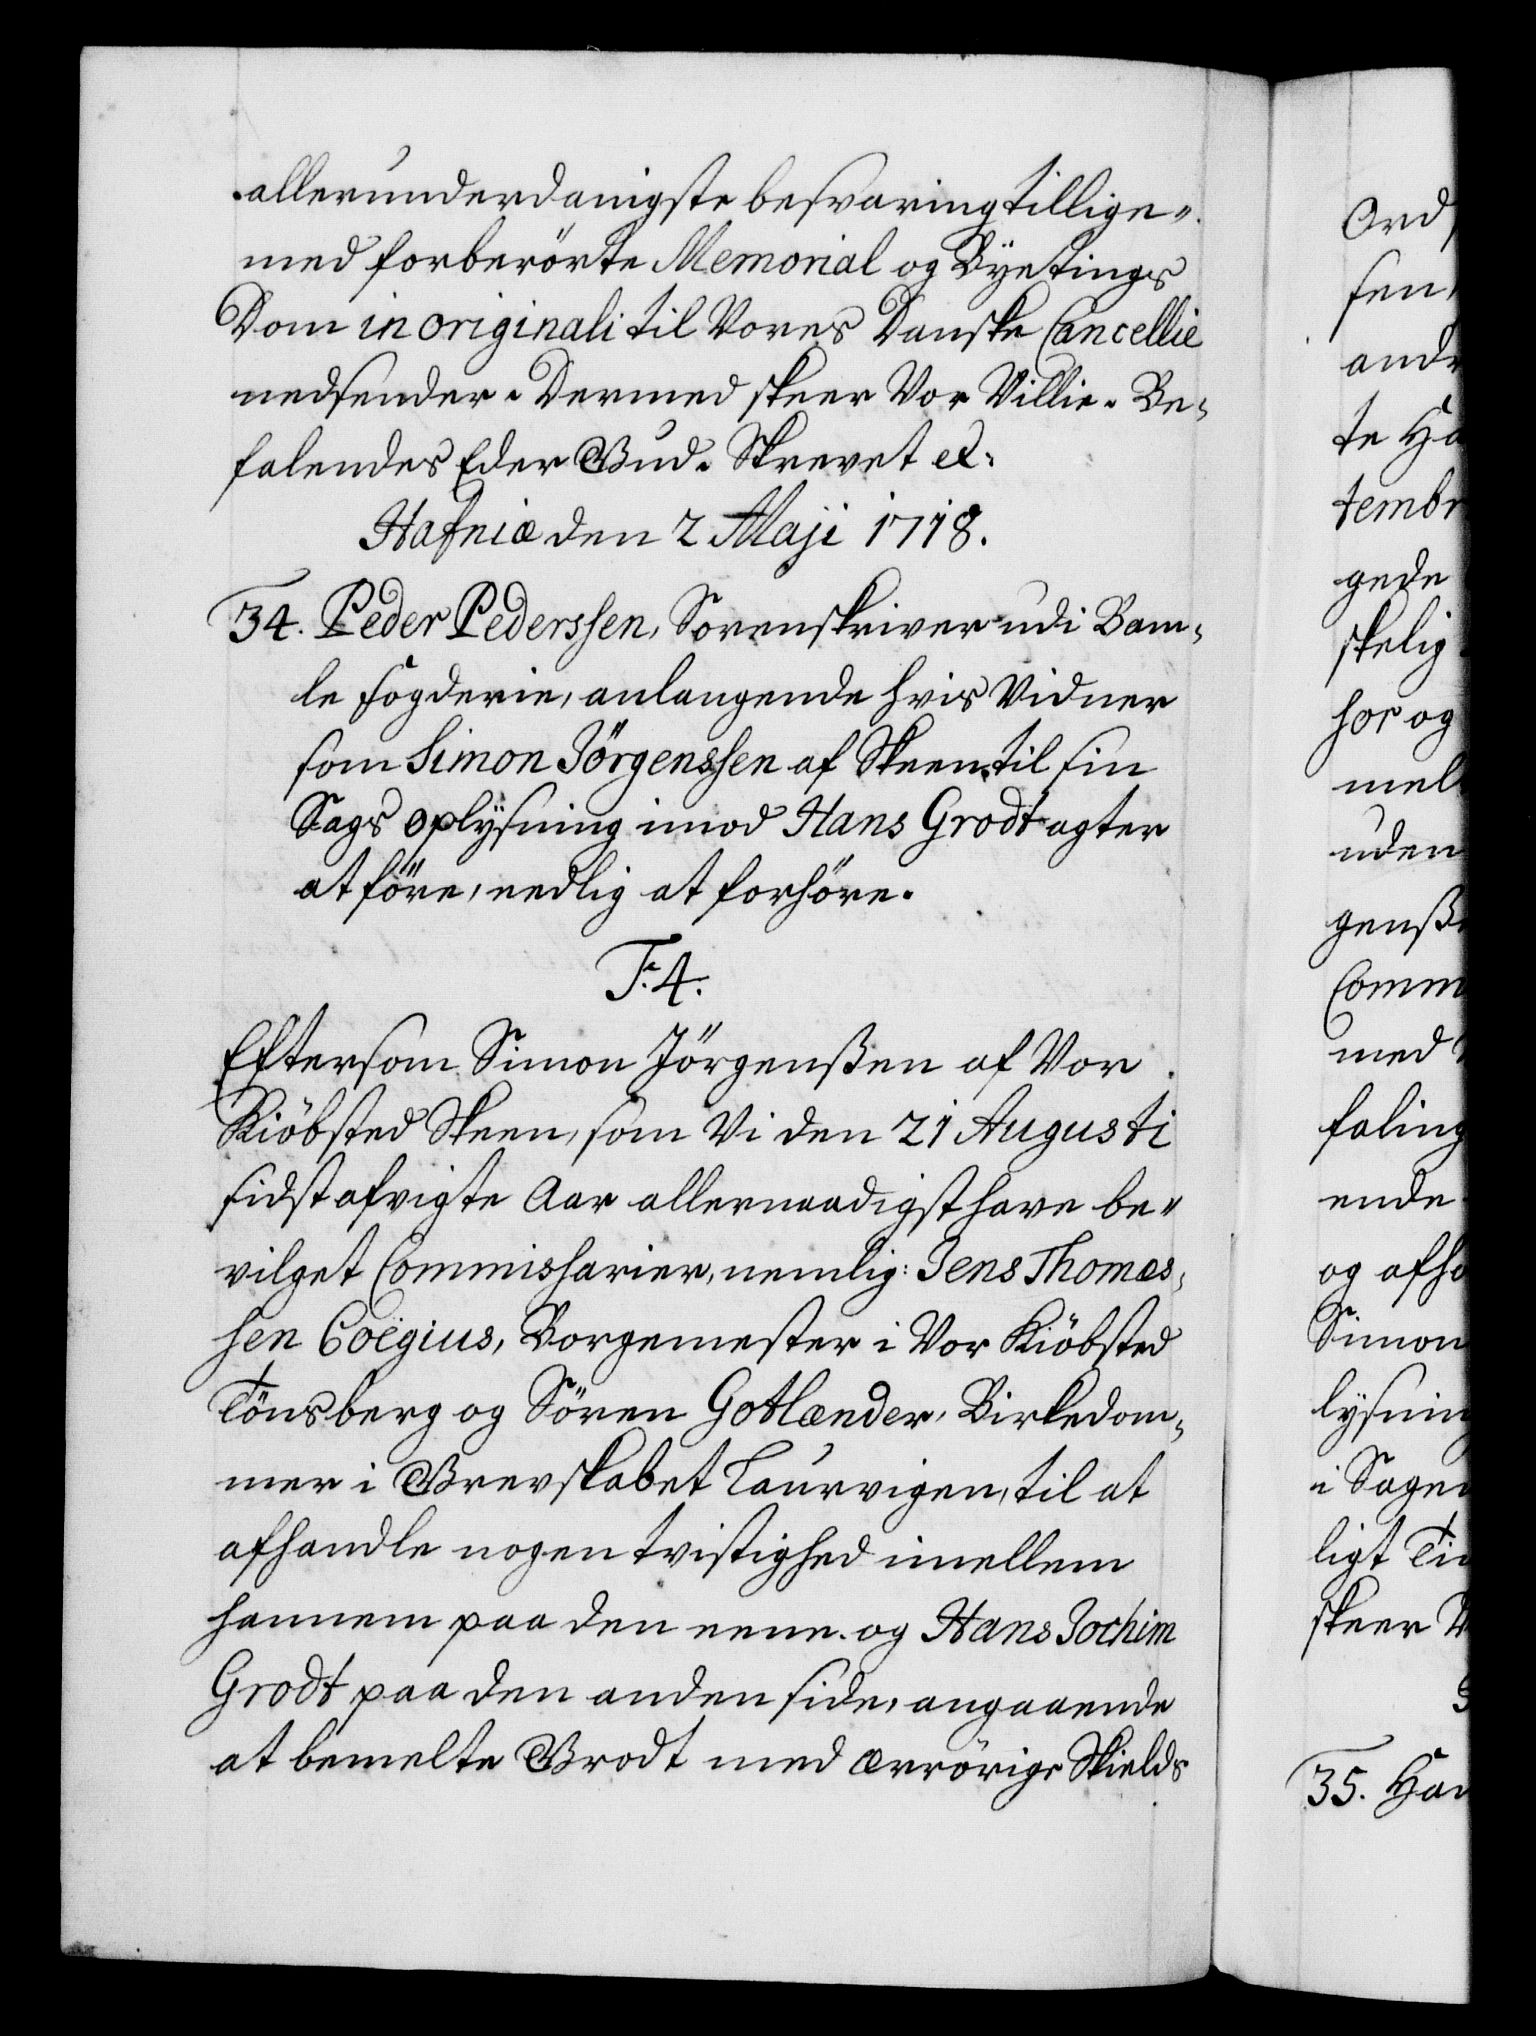 allerunderdanigste besvaring tillige„
med forberörte Memorial og Byetings
Dom in originali til Vores Danske Cancellie
nedsender. Dermed skeer Vor Villie. Be,
falendes Eder Gud. Skrevet etc.
Hafniæ den 2 Maji 1718.
34. Peder Pederssen, Sorenskriver udi Bam,
le Fogderie, anlangende hvis Vidner
som Simon Jörgenssen af Skeen til sin
Sags oplysning imod Hans Grodt agter
at före, nedlig at forhöre.
F. 4.
Eftersom Simon Jörgenßen af Vor
Kiöbsted Skeen, som Vi den 21 Augusti
sidst afvigte Aar allernaadigst have be„
vilget Commissarier, nemlig: Jens Thomes,
sen Coëgius, Borgemester i Vor Kiöbsted
Tönsberg og Sören Gotlænder, Birkedom,
mer i Grevskabet Laurvigen, til at
afhandle nogen tvistighed imellem
hannem paa den eene og Hans Jochim
Grodt paa den anden side, angaaende
at bemelte Grodt med ærrörige Skields
Ord
sen,
andr
te Ha
tembr
gede
skelig
hor og
mel
uden
genße
Comm
med
faling
ende
og afha
Simon
lysning
i Sagen
ligt Tin
skeer V
35. Han